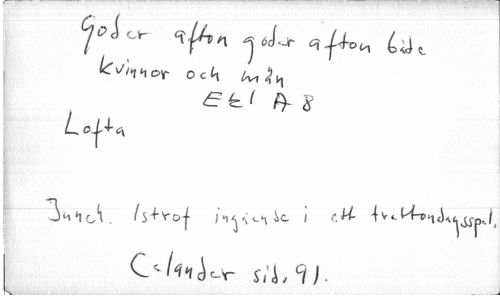 Goder afton goder afton både
kvinnor och män
Ekl A 8
Lofta
1 strof ingående i ett trettondagsspel,
Celander sid. 91.